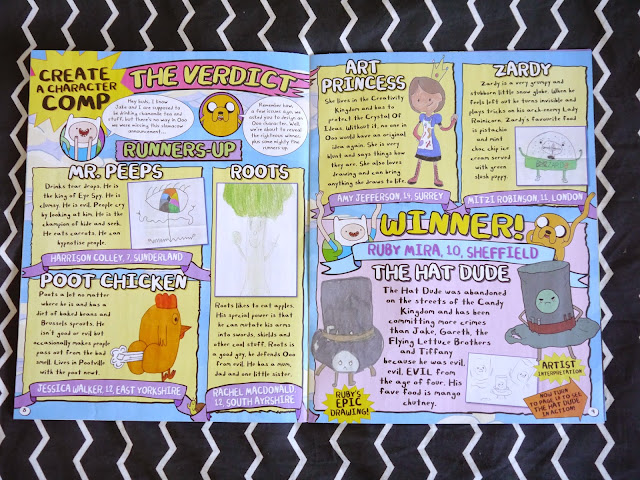 CREATE
A CHARACTER
COMP
THE VERDICT
Hey kids, I know
Jake and I are supposed to
be drinking chamomile tea and
stuff, but there's no way in Ooo
we were missing this character
announcement...
Remember how,
a few issues ago, we
asked you to design an
Ooo character? Well,
we're about to reveal
the righteous winner,
plus some mighty fine
runners up.
RUNNERS-UP
MR. PEEPS
Drinks tear drops. He is
the king of Eye Spy. He is
clumsy. He is evil. People cry
by looking at him. He is the
champion of hide and seek.
He eats carrots. He can
hypnotise people.
HARRISON COLLEY, 7, SUNDERLAND
ROOTS
Roots likes to eat apples.
His special power is that
he can mutate his arms
into swords, shields and
other cool stuff. Roots is
a good guy, he defends Ooo
from evil. He has a mum,
dad and one little sister.
RACHEL MACDONALD,
12, SOUTH AYRSHIRE
POOT CHICKEN
Poots a lot no matter
where he is and has a
diet of baked beans and
Brussels sprouts. He
isn't good or evil but
occasionally makes people
pass out from the bad
smell. Lives in Pootville
with the poot newt.
JESSICA WALKER, 12, EAST YORKSHIRE
8
ART
PRINCESS
She lives in the Creativity
Kingdom and has to
protect the Crystal Of
Ideas. Without it, no one in
Ooo would have an original
idea again. She is very
blunt and says things how
they are. She also loves
drawing and can bring
anything she draws to life.
AMY JEFFERSON, 14, SURREY
ZARDY
Zardy is a very grumpy and
stubborn little snow globe. When he
feels left out he turns invisible and
plays tricks on his arch enemy Lady
Rainicorn. Zardy's favourite food
is pistachio
and mint
choc chip ice
cream served
with green
slush puppy.
MITZI ROBINSON, 11, LONDON
WINNER!
RUBY MIRA, 10, SHEFFIELD
THE HAT DUDE
The Hat Dude was abandoned
on the streets of the Candy
Kingdom and has been
committing more crimes
than Jake, Gareth, the
Flying Lettuce Brothers
and Tiffany
because he was evil,
evil, EVIL from
the age of four. His
fave food is mango
chutney.
RUBY'S
EPIC
DRAWING!
ARTIST
INTERPRETATION
NOW TURN
TO PAGE 17 TO SEE
THE HAT DUDE
IN ACTION!
9